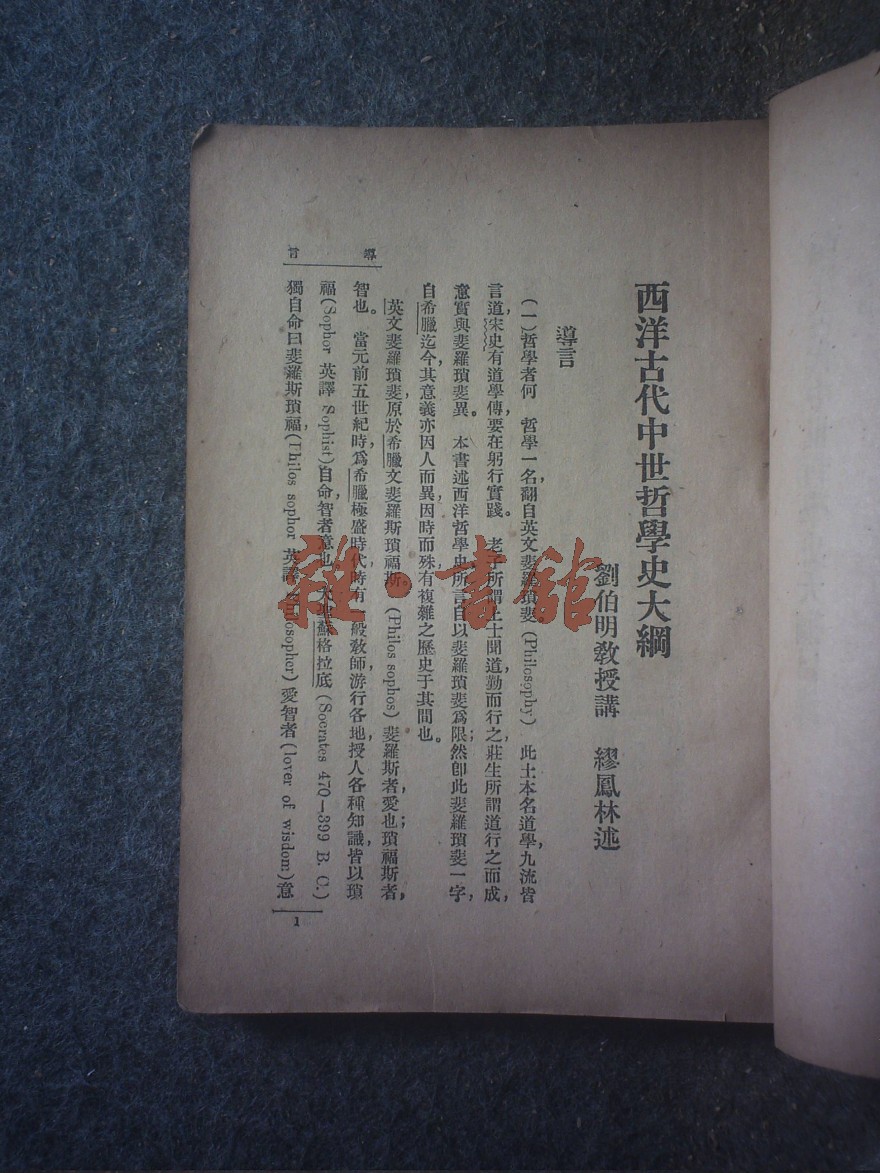 西洋古代中世哲學史大綱
劉伯明教授講　繆鳳林述
導言
(一)哲學者何　哲學一名，翻自英文斐羅瑣斐。(Philosophy)　此土本名道學，九流皆
言道，宋史有道學傳，要在躬行實踐。　老子所謂上士聞道勤而行之，莊生所謂道行之而成，
意實與斐羅瑣斐異。　本書述西洋哲學史，所言自以斐羅瑣斐爲限；然卽此斐羅瑣斐一字，
自希臘迄今，其意義亦因人而異，因時而殊，有複雜之歷史于其間也。
英文斐羅瑣斐，原於希臘文斐羅斯瑣福斯。(Philos sophos)　斐羅斯者，愛也；瑣福斯者，
智也。　當元前五世紀時，爲希臘極盛時代，時有一般敎師，游行各地，授人各種知識，皆以瑣
福(Sophor 英譯 Sophist)自命，智者意也。　蘇格拉底(Socrates 470—399 B. C.)
獨自命曰斐羅斯瑣福，(Philos sophor 英譯 Philosopher)　愛智者(lover of wisdom)意
導言
1
雜·書館